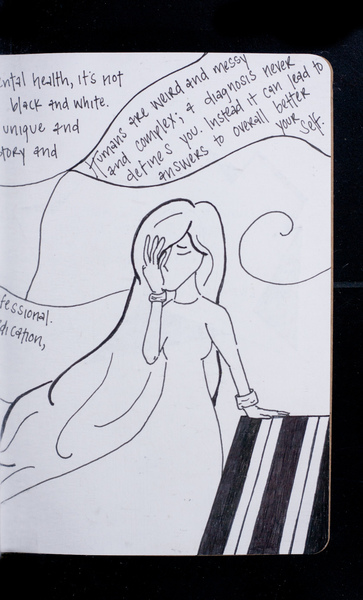 ental health, it's not
black and white.
unique and
tory and
Humans are weird and messy
and complex; a diagnosis never
defines you. Instead it can lead to
answers to overall better
your self.
ofessional.
dication,